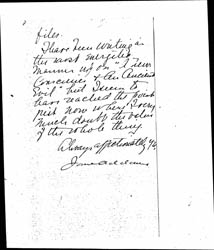 files.
I have been writing in
the most energetic
manner upon "A New
Conscience & An Ancient
Evil" but I seem to
have reached the point
just now where I very
much doubt the value
of the whole thing
Always affectionately yrs
Jane Addams